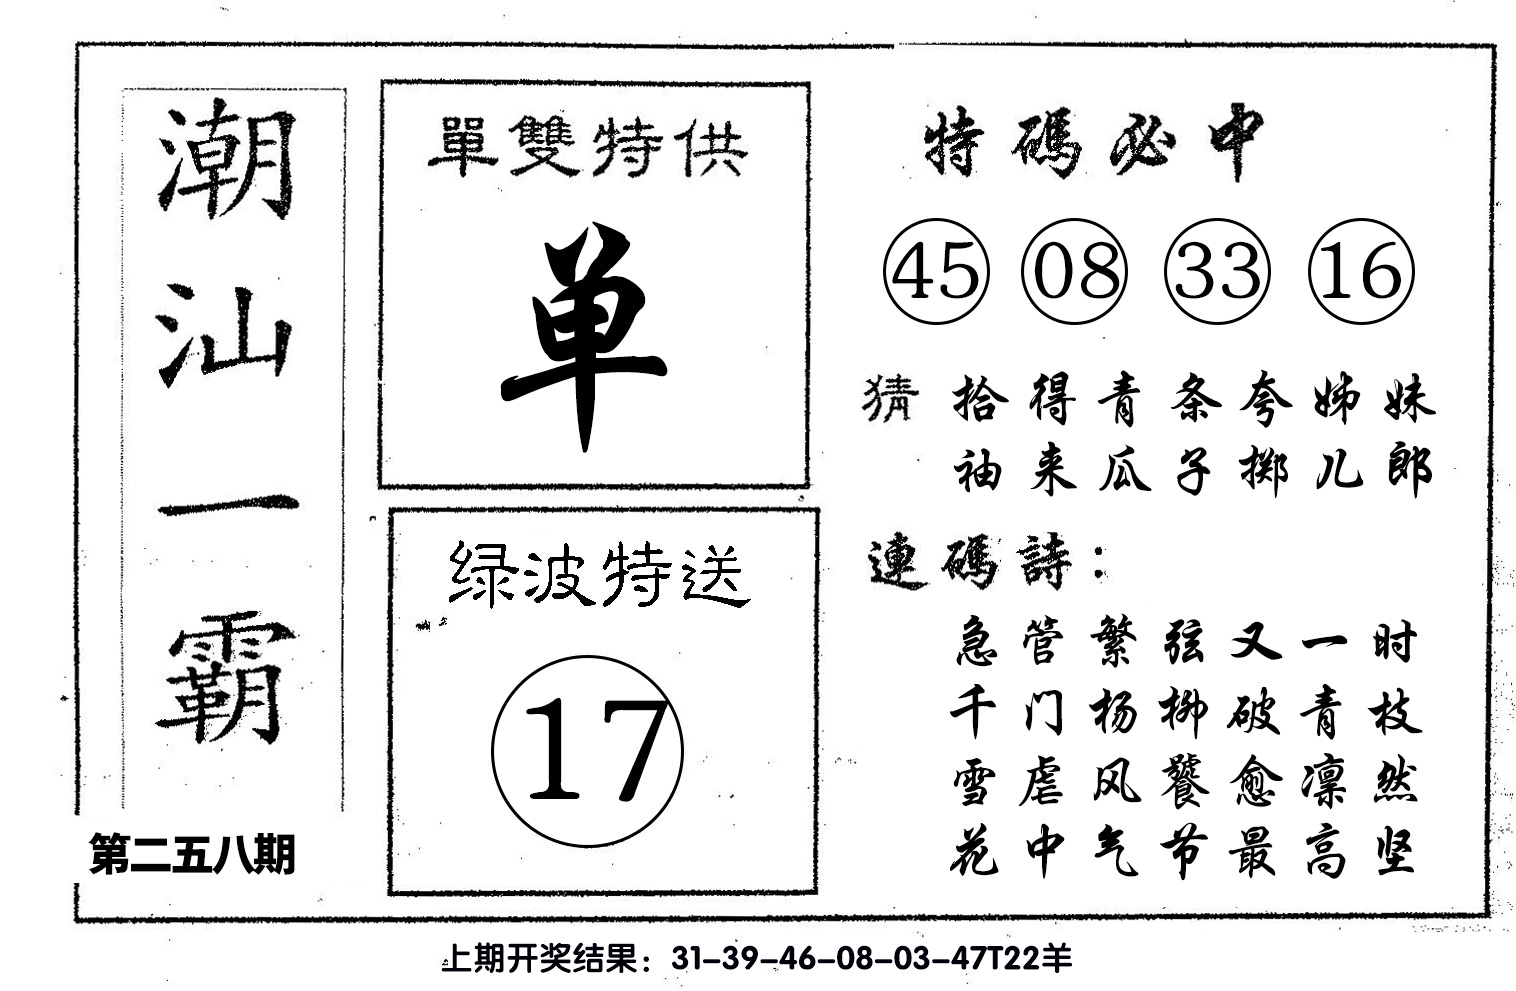 潮汕一霸
第二五八期
單雙特供
单
绿波特送
17
特碼必中
45 08 33 16
猜 拾得青条夸姊妹
袖来瓜子掷儿郎
連碼詩：
急管繁弦又一时
千门杨柳破青枝
雪虐风饕愈凛然
花中气节最高坚
上期开奖结果：31-39-46-08-03-47T22羊